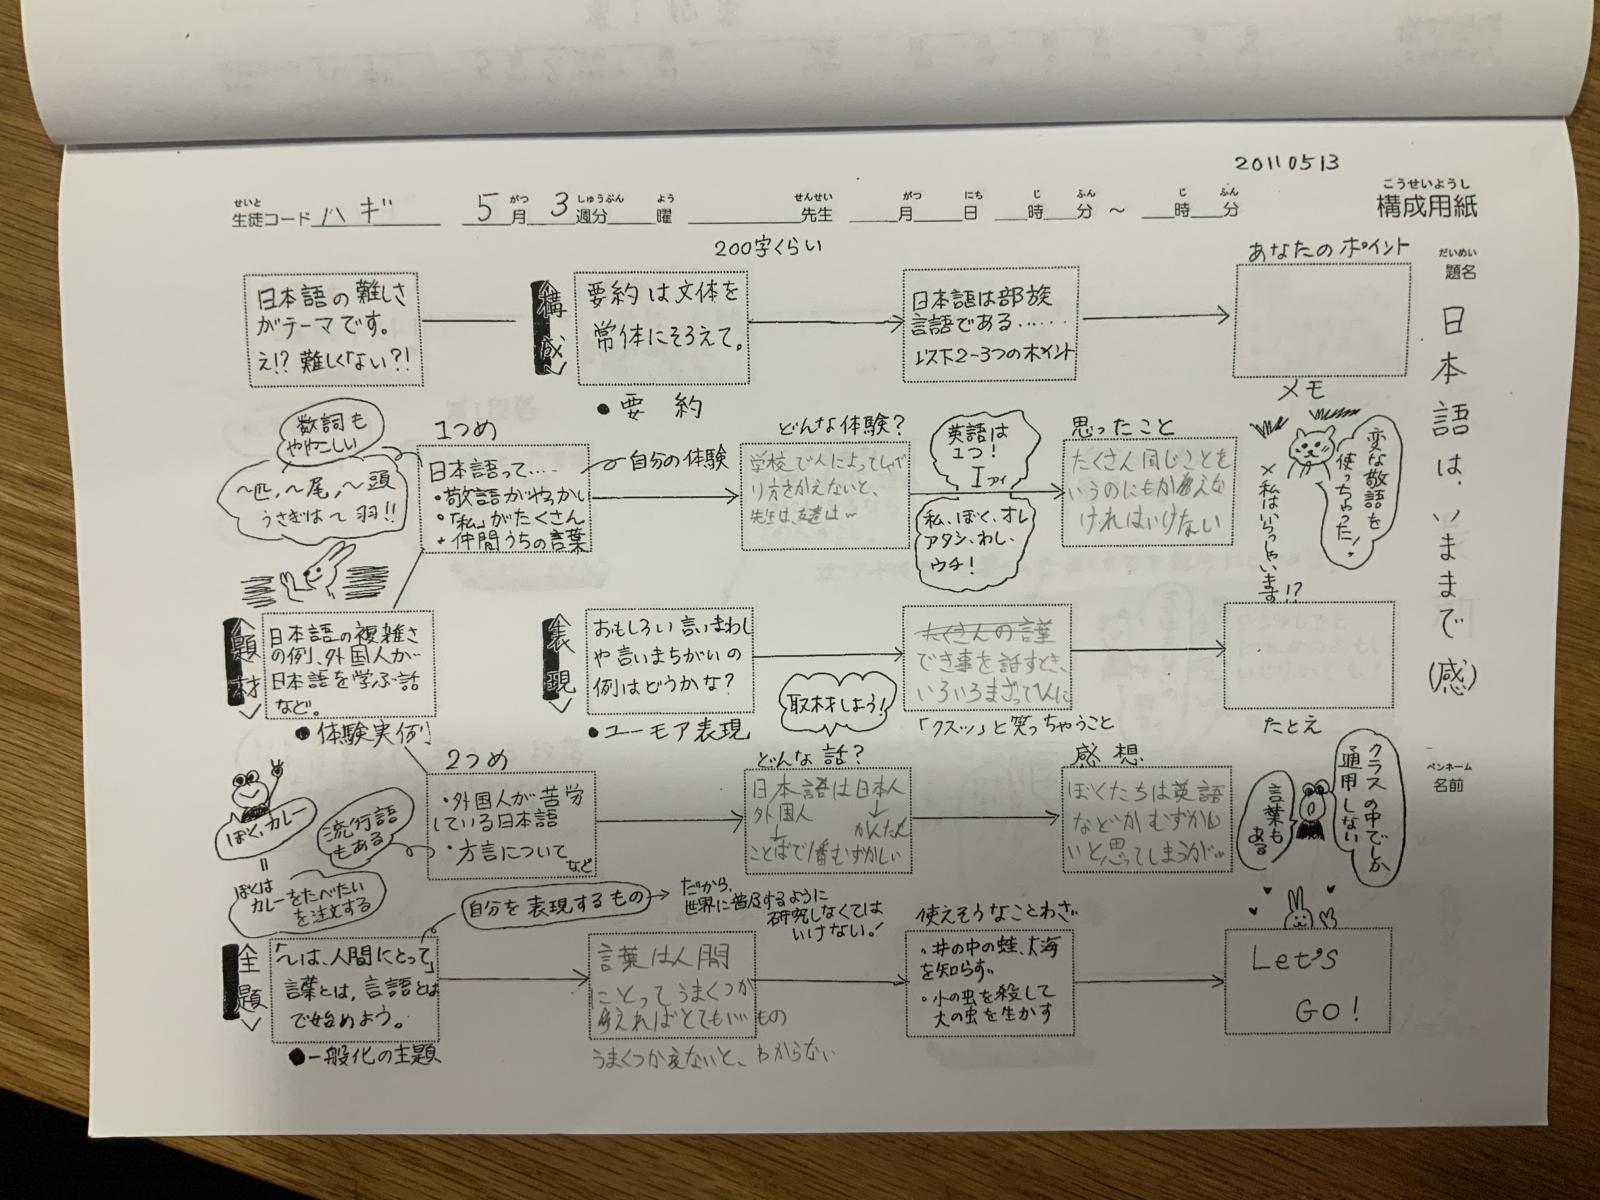 20110513
こうせいようし
構成用紙
せいと
生徒コード ハギ 5月 3週分 曜 先生 月 日 時 分 ～ 時 分
がつ しゅうぶん よう せんせい がつ にち じ ふん じ ふん
だいめい
題名
日本語は、いままで(感)
ペンネーム
名前
日本語の難しさ
がテーマです。
え!? 難しくない?!
構成
200字くらい
要約は文体を
常体にそろえて。
●要約
日本語は部族
言語である……
以下2~3つのポイント
あなたのポイント
メモ
数詞も
ややこしい
~匹、~尾、~頭
うさぎは~羽!!
1つめ
日本語って‥‥
・敬語がやっかい
・「私」がたくさん
・仲間うちの言葉
自分の体験
どんな体験?
学校で人によってしゃべ
り方をかえないと、
先生は、友達は~
英語は
1つ!
I アイ
私、ぼく、オレ
アタシ、わし、
ウチ!
思ったこと
たくさん同じことを
いうのにもかえな
ければいけない
変な敬語を
使っちゃった!
×私はいらっしゃいます!?
題材
日本語の複雑さ
の例、外国人が
日本語を学ぶ話
など。
●体験実例
表現
おもしろい言いまわし
や言いまちがいの
例はどうかな?
●ユーモア表現
取材しよう!
たくさんの
でき事を話すとき、
いろいろまざって
「クスッ」と笑っちゃうこと
たとえ
ぼく、カレー
=
ぼくは
カレーをたべたい
を注文する
流行語
もある
2つめ
・外国人が苦労
している日本語
・方言について
など
どんな話?
日本語は日本人
外国人 ↓
↓ かんたん
ことばで1番むずかしい
感想
ぼくたちは英語
などがむずかし
いと思ってしまうが…
クラスの中でしか
通用しない
言葉も
ある
主題
「~は、人間にとって」
言葉とは、言語とは
で始めよう。
●一般化の主題
自分を表現するもの
だから、
世界に普及するように
研究しなくては
いけない。!
言葉は人間
にとってうまくつか
えればとてもいいもの
うまくつかえないと、わからない
使えそうなことわざ
・井の中の蛙、大海
を知らず
・小の虫を殺して
大の虫を生かす
Let's
GO!